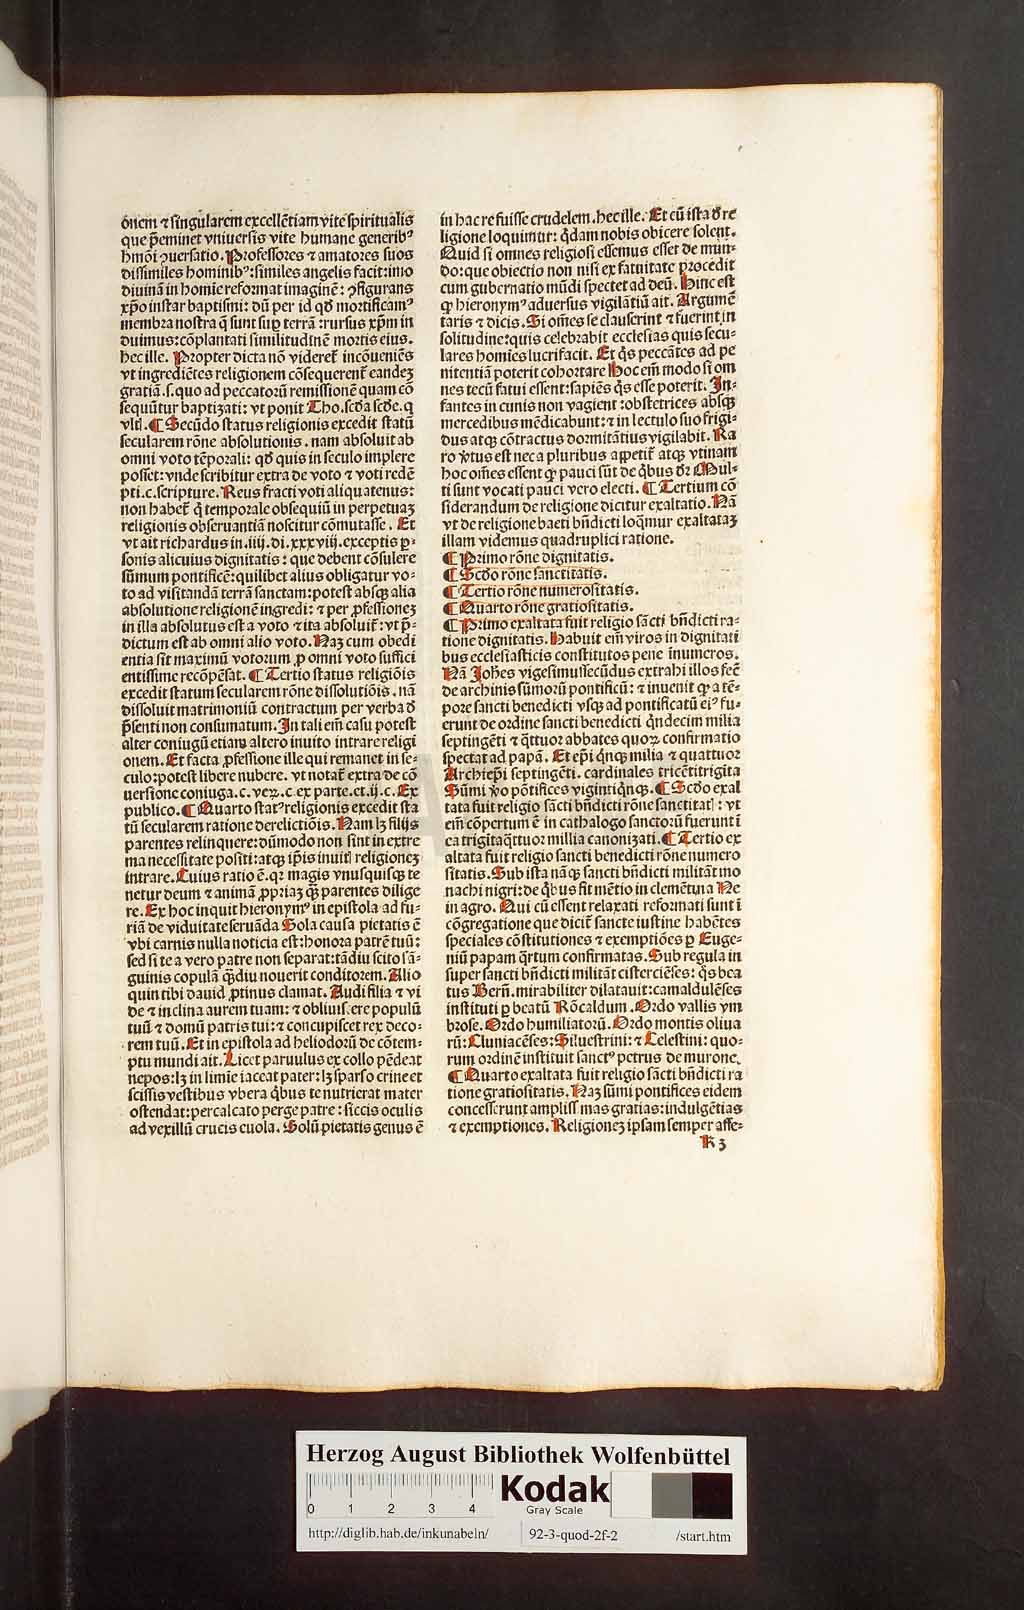 ōnem ⁊ singularem excellētiam vite spiritualis
que p̄eminet vniuersis vite humane generibꝰ
hmōi ꝯuersatio. Professores ⁊ amatores suos
dissimiles hominibꝰ: similes angelis facit: imo
diuinā in homīe reformat imaginē: ꝯfigurans
xp̄o instar baptismi: dū per id qd̄ mortificamꝰ
membra nostra q̄ sunt suꝑ terrā: rursus xp̄m in
duimus: cōplantati similitudīnē mortis eius.
hec ille. Propter dicta nō videret̄ incōueniēs
vt ingrediētes religionem cōsequerent̄ eandeȝ
gratiā .s. quo ad peccatorū remissionē quam cō
sequūtur baptizati: vt ponit Tho. scd̄a scd̄e. q
vltī. ¶ Secūdo status religionis excedit statū
secularem rōne absolutionis. nam absoluit ab
omni voto tēporali: qd̄ quis in seculo implere
posset: vnde scribitur extra de voto ⁊ voti redē
pti. c. scripture. Reus fracti voti aliquatenus:
non habet̄ q̄ temporale obsequiū in perpetuaȝ
religionis obseruantiā noscitur cōmutasse. Et
vt ait richardus in .iiij. di. xxxviij. exceptis ꝑ-
sonis alicuius dignitatis: que debent cōsulere
sūmum pontificē: quilibet alius obligatur vo-
to ad visitandā terrā sanctam: potest absqꝫ alia
absolutione religionē ingredi: ⁊ per ꝓfessioneȝ
in illa absolutus est a voto ⁊ ita absoluit̄: vt p̄-
dictum est ab omni alio voto. Naȝ cum obedi
entia sit maximū votorum ꝓ omni voto suffici
entissime recōpēsat. ¶ Tertio status religiōis
excedit statum secularem rōne dissolutiōis. nā
dissoluit matrimoniū contractum per verba d̄
p̄senti non consumatum. In tali em̄ casu potest
alter coniugū etiam altero inuito intrare religi
onem. Et facta ꝓfessione ille qui remanet in se-
culo: potest libere nubere. vt notat̄ extra de cō
uersione coniuga. c. veꝝ. c. ex parte. et. ij. c. Ex
publico. ¶ Quarto statꝰ religionis excedit sta
tū secularem ratione derelictiōis. Nam lȝ filijs
parentes relinquere: dūmodo non sint in extre
ma necessitate positi: atqꝫ ip̄is inuitꝭ religioneȝ
intrare. Cuius ratio ē. qꝛ magis vnusquisqꝫ te
netur deum ⁊ animā ꝓpriaȝ qȝ̄ parentes dilige
re. Ex hoc inquit hieronymꝰ in epistola ad fu-
riā de viduitate seruāda Sola causa pietatis ē
vbi carnis nulla noticia est: honora patrē tuū:
sed si te a vero patre non separat: tādiu scito sā-
guinis copulā qȝ̄diu nouerit conditorem. Alio
quin tibi dauid ꝓtinus clamat. Audi filia ⁊ vi
de ⁊ inclina aurem tuam: ⁊ obliuiscere populū
tuū ⁊ domū patris tui: ⁊ concupiscet rex deco-
rem tuū. Et in epistola ad heliodorū de cōtem-
ptu mundi ait. Licet paruulus ex collo pēdeat
nepos: lȝ in limīe iaceat pater: lȝ sparso crine et
scissis vestibus vbera qb̄us te nutrierat mater
ostendat: per calcato perge patre: siccis oculis
ad vexillū crucis euola. Solū pietatis genus ē
in hac re fuisse crudelem. hec ille. Et cū ista d̄ re
ligione loquimur: qd̄am nobis obicere solent.
Quid si omnes religiosi essemus esset de mun-
do: que obiectio non nisi ex fatuitate procedit
cum gubernatio mūdi spectet ad deū. Hinc est
ꝙ hieronymꝰ aduersus vigilātiū ait. Argumē
taris ⁊ dicis. Si oēs se clauserint ⁊ fuerint in
solitudine: quis celebrabit ecclesias quis secu-
lares homīes lucrifaciet. Et qs̄ peccātes ad pe
nitentiā poterit cohortare Hoc em̄ modo si om
nes tecū fatui essent: sapiēs qs̄ esse poterit. In-
fantes in cunis non vagient: obstetrices absqꝫ
mercedibus mēdicabunt: ⁊ in lectulo suo frigi-
dus atqꝫ cōtractus dormitātius vigilabit. Ra
ro v̄tus est nec a pluribus appetit̄ atqꝫ vtinam
hoc om̄es essent ꝙ pauci sūt de qb̄us dr̄ Mul-
ti sunt vocati pauci vero electi. ¶ Tertium cō
siderandum de religione dicitur exaltatio. Nā
vt de religione baeti bn̄dicti loqm̄ur exaltataȝ
illam videmus quadruplici ratione.
¶ Primo rōne dignitatis.
¶ Scd̄o rōne sanctitatis.
¶ Tertio rōne numerositatis.
¶ Quarto rōne gratiositatis.
¶ Primo exaltata fuit religio sācti bn̄dicti ra-
tione dignitatis. Habuit em̄ viros in dignitati
bus ecclesiasticis constitutos pene īnumeros.
Nā Joh̄es vigesimussecūdus extrahi illos fec̄
de archiuis sūmorū pontificū: ⁊ inuenit ꝙ a tē-
pore sancti benedicti vsqꝫ ad pontificatū eiꝰ fu-
erunt de ordine sancti benedicti qn̄decim milia
septingēti ⁊ qt̄tuor abbates quoꝝ confirmatio
spectat ad papā. Et ep̄i qn̄qꝫ milia ⁊ quattuor
Archiep̄i septingēti. cardinales tricētitrigīta
Sūmi v̄o pōtifices vigintiqn̄qꝫ. ¶ Scd̄o exal
tata fuit religio sācti bn̄dicti rōne sanctitatꝭ: vt
em̄ cōpertum ē in cathalogo sanctorū fuerunt ī
ea trigītaqt̄tuor millia canonizati. ¶ Tertio ex
altata fuit religio sancti benedicti rōne numero
sitatis. Sub ista nāqꝫ sancti bn̄dicti militāt mo
nachi nigri: de qb̄us fit mētio in clemētina Ne
in agro. Qui cū essent relaxati reformati sunt ī
cōgregatione que dicit̄ sancte iustine habētes
speciales cōstitutiones ⁊ exemptiōes ꝑ Euge-
niū papam qr̄tum confirmatas. Sub regula in
super sancti bn̄dicti militāt cisterciēses: qs̄ bea
tus Bern̄. mirabiliter dilatauit: camaldulēses
instituti ꝑ beatū Rōcaldum. Ordo vallis vm
brose. Ordo humiliatorū. Ordo montis oliua
rū: Cluniacēses: Siluestrini: ⁊ Celestini: quo-
rum ordinē instituit sanctꝰ petrus de murone.
¶ Quarto exaltata fuit religio sācti bn̄dicti ra
tione gratiositatis. Naȝ sūmi pontifices eidem
concesserunt ampliss mas gratias: indulgētias
⁊ exemptiones. Religioneȝ ipsam semper affe-
K 3
Herzog August Bibliothek Wolfenbüttel
0 1 2 3 4
Kodak
Gray Scale
http://diglib.hab.de/inkunabeln/ 92-3-quod-2f-2 /start.htm